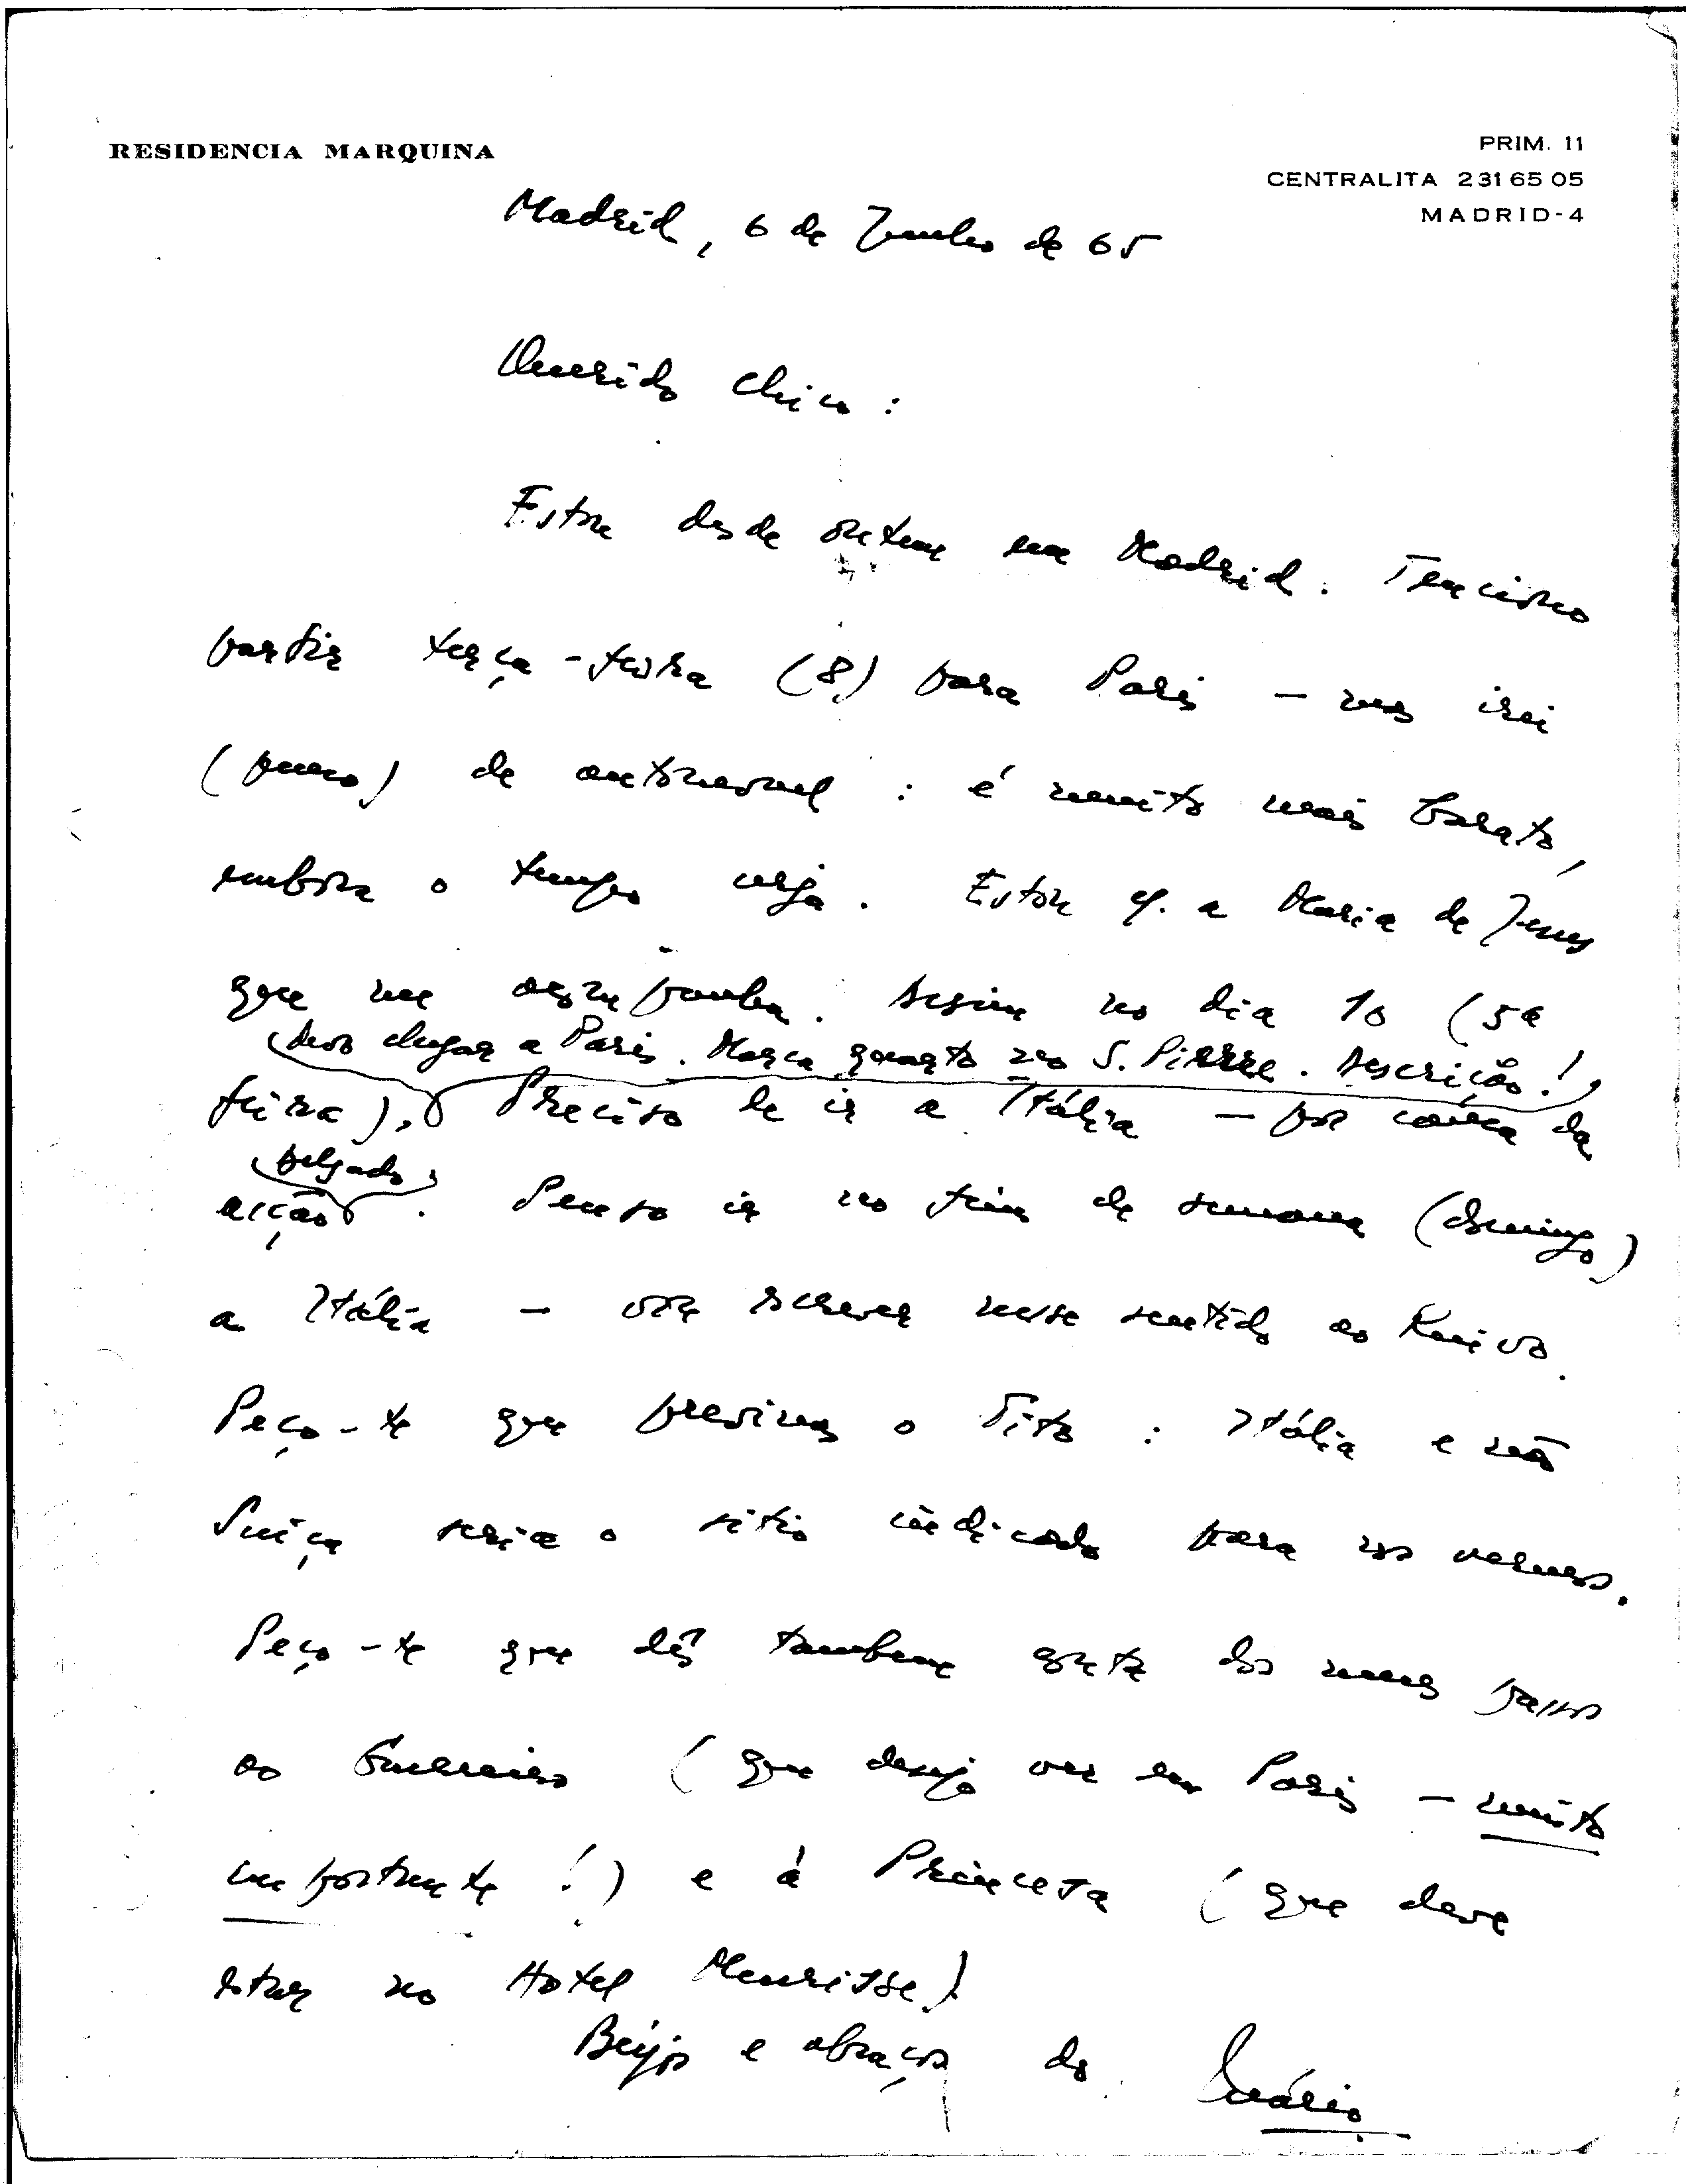 RESIDENCIA MARQUINA
PRIM. 11
CENTRALITA 231 65 05
MADRID-4
Madrid, 6 de Junho de 65
Querido Chico:
Estou desde ontem em Madrid. Tenciono
partir terça-feira (8) para Paris – mas irei
(penso) de automovel : é muito mais barato,
embora o tempo urja. Estou c/. a Maria de Jesus
que me acompanha. Assim no dia 10 (5ª
devo chegar a Paris. Marca quarto no S. Pierre. Descrição!
feira), Preciso de ir a Itália – por causa da
Delgado
acção . Penso ir no fim de semana (domingo)
a Itália – vou escrever nesse sentido ao
Peço-te que previnas o Tito : Itália e não
Suíça seria o sitio indicado para nos vermos.
Peço-te que dês tambem conta dos meus passos
ao Guerreiro (que desejo ver em Paris – muito
importante !) e à Princesa (que deve
estar no Hotel Meurisse)
Beijos e abraços do Mário